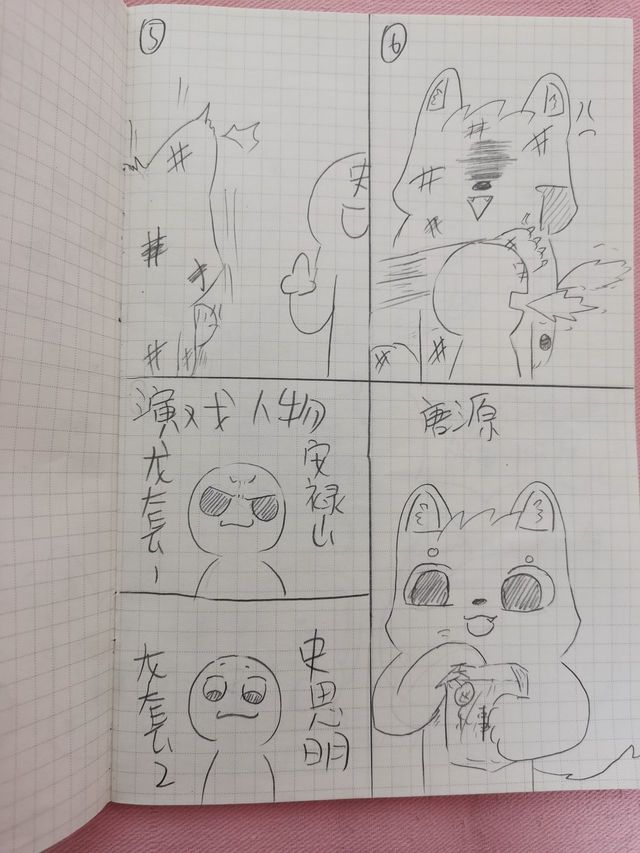 ⑤
史
⑥
演戏人物
龙套1
安禄山
龙套2
史思明
唐源